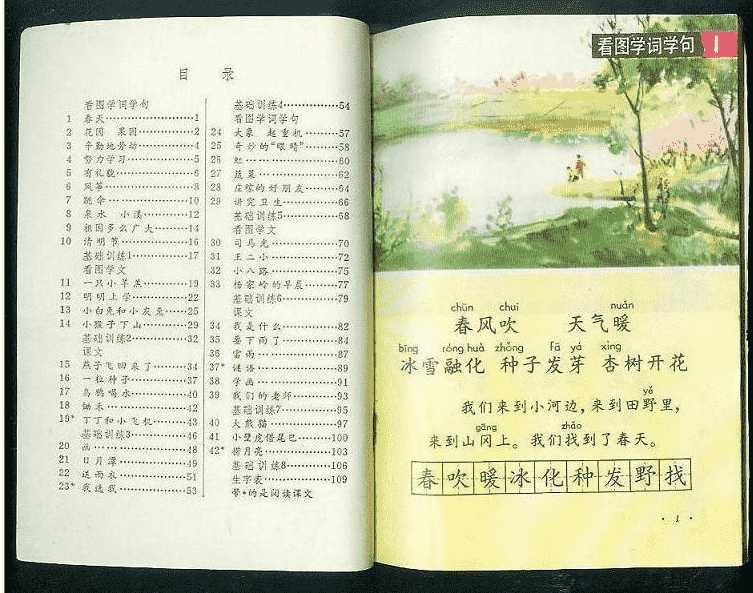 目 录
看图学词学句
1 春天……1
2 花园 果园……2
3 辛勤地劳动……4
4 努力学习……5
5 有礼貌……6
6 风筝……8
7 跳伞……10
8 泉水 小溪……12
9 祖国多么广大……14
10 清明节……16
基础训练1……17
看图学文
11 一只小羊羔……19
12 明明上学……22
13 小白兔和小灰兔……25
14 小猴子下山……29
基础训练2……32
课文
15 燕子飞回来了……34
16 一粒种子……37
17 乌鸦喝水……40
18 锄禾……42
19* 丁丁和小飞机……43
基础训练3……46
20 画……48
21 日月潭……49
22 送雨衣……51
23* 我选我……53
基础训练4……54
看图学词学句
24 大象 起重机……57
25 奇妙的“眼睛”……58
26 虹……60
27 蔬菜……62
28 庄稼的好朋友……64
29 讲究卫生……66
基础训练5……68
看图学文
30 司马光……70
31 王二小……72
32 小八路……75
33 杨家岭的早晨……77
基础训练6……79
课文
34 我是什么……82
35 要下雨了……84
36 雷雨……87
37* 谜语……89
38 学画……91
39 我们的老师……93
基础训练7……95
40 大熊猫……97
41 小壁虎借尾巴……100
42* 捞月亮……103
基础训练8……106
生字表……109
带*的是阅读课文
看图学词学句 1
chūn chuī nuǎn
春风吹 天气暖
bīng róng huà zhǒng fā yá xìng
冰雪融化 种子发芽 杏树开花
yě
我们来到小河边,来到田野里,
gāng zhǎo
来到山冈上。我们找到了春天。
春吹暖冰化种发野找
· 1 ·